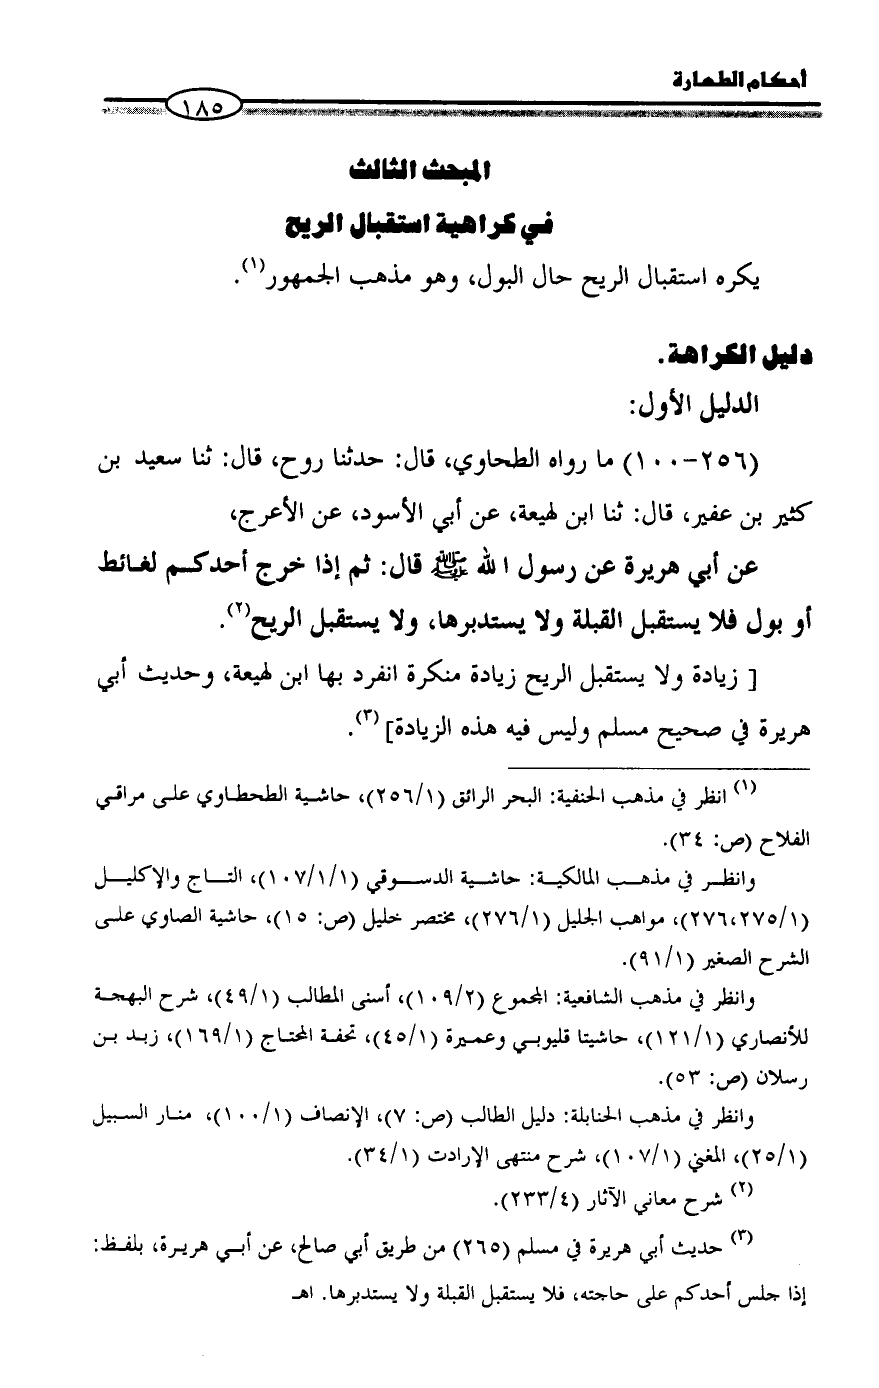 أحكام الطهارة
١٨٥
المبحث الثالث
في كراهية استقبال الريح
يكره استقبال الريح حال البول، وهو مذهب الجمهور(١).
دليل الكراهة.
الدليل الأول:
(٢٥٦-١٠٠) ما رواه الطحاوي، قال: حدثنا روح، قال: ثنا سعيد بن
كثير بن عفير، قال: ثنا ابن لهيعة، عن أبي الأسود، عن الأعرج،
عن أبي هريرة عن رسول الله ﷺ قال: ثم إذا خرج أحدكم لغائط
أو بول فلا يستقبل القبلة ولا يستدبرها، ولا يستقبل الريح(٢).
[ زيادة ولا يستقبل الريح زيادة منكرة انفرد بها ابن لهيعة، وحديث أبي
هريرة في صحيح مسلم وليس فيه هذه الزيادة](٣).
(١) انظر في مذهب الحنفية: البحر الرائق (٢٥٦/١)، حاشية الطحطاوي على مراقي
الفلاح (ص: ٣٤).
وانظر في مذهب المالكية: حاشية الدسوقي (١٠٧/١/١)، التاج والإكليل
(٢٧٦،٢٧٥/١)، مواهب الجليل (٢٧٦/١)، مختصر خليل (ص: ١٥)، حاشية الصاوي على
الشرح الصغير (٩١/١).
وانظر في مذهب الشافعية: المجموع (١٠٩/٢)، أسنى المطالب (٤٩/١)، شرح البهجة
للأنصاري (١٢١/١)، حاشيتا قليوبي وعميرة (٤٥/١)، تحفة المحتاج (١٦٩/١)، زبد بن
رسلان (ص: ٥٣).
وانظر في مذهب الحنابلة: دليل الطالب (ص: ٧)، الإنصاف (١٠٠/١)، منار السبيل
(٢٥/١)، المغني (١٠٧/١)، شرح منتهى الإرادت (٣٤/١).
(٢) شرح معاني الآثار (٢٣٣/٤).
(٣) حديث أبي هريرة في مسلم (٢٦٥) من طريق أبي صالح، عن أبي هريرة، بلفظ:
إذا جلس أحدكم على حاجته، فلا يستقبل القبلة ولا يستدبرها. اهـ